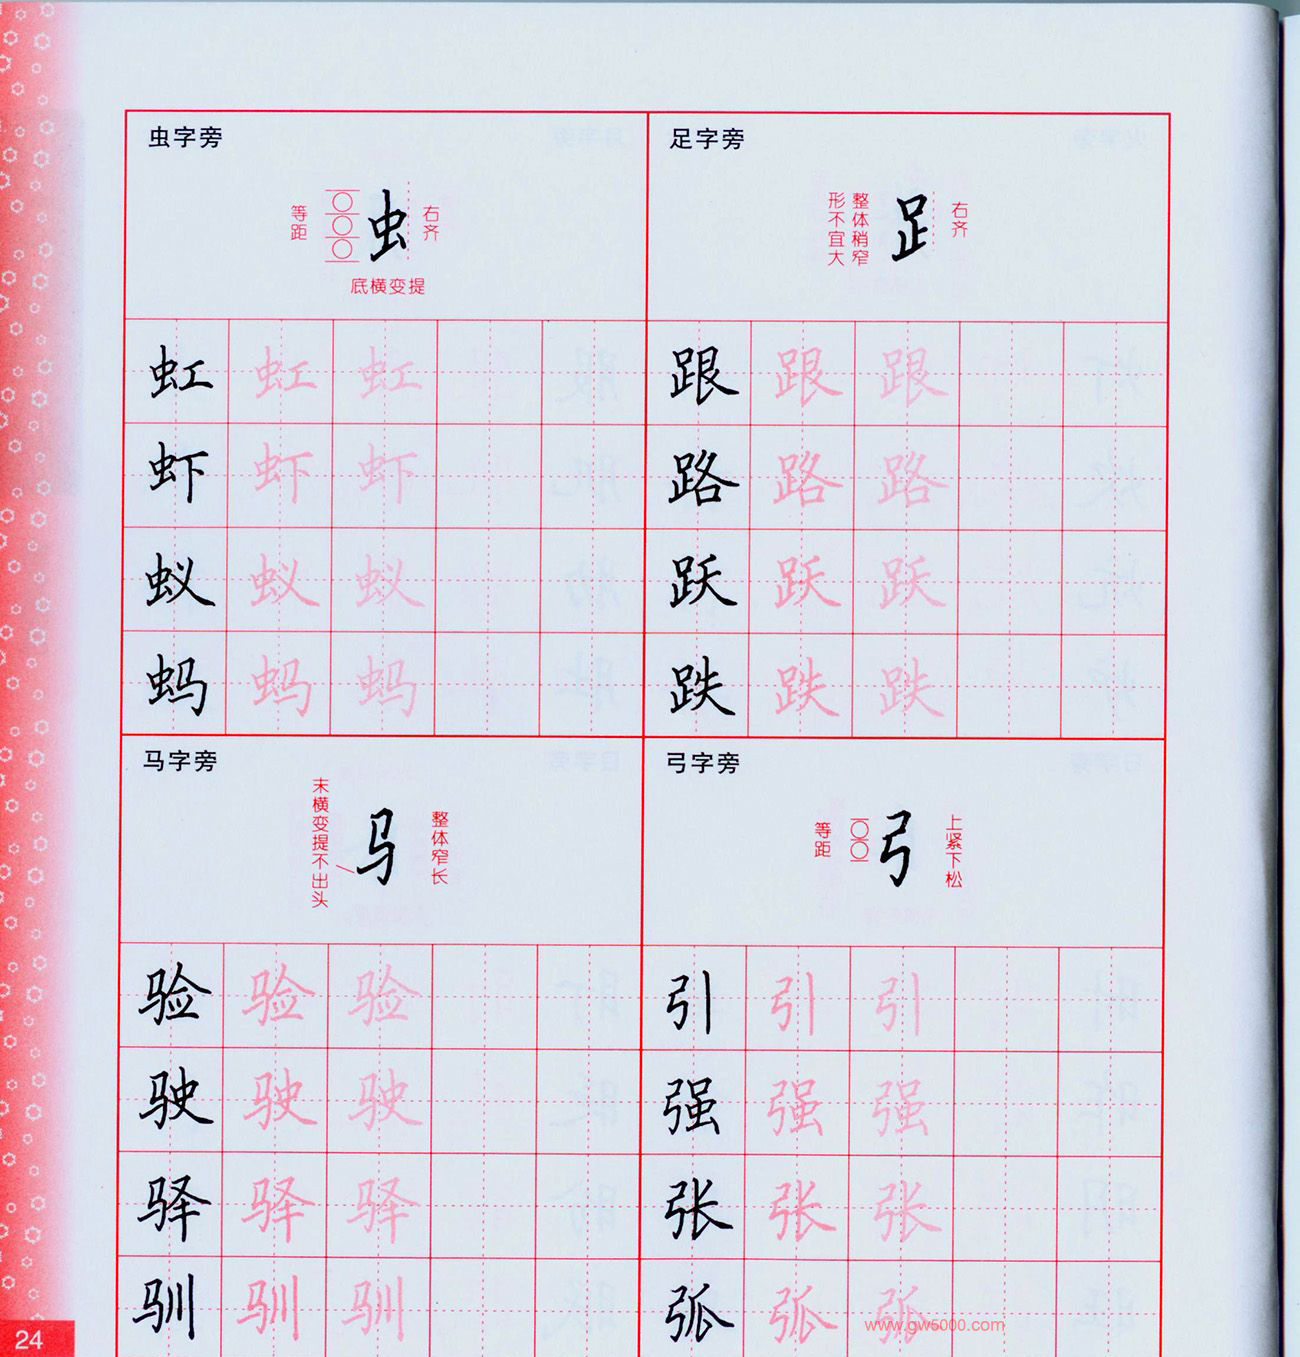 虫字旁
等距
右齐
虫
底横变提
虹 虹 虹
虾 虾 虾
蚁 蚁 蚁
蚂 蚂 蚂
足字旁
形不宜大
整体稍窄
右齐
跟 跟 跟
路 路 路
跃 跃 跃
跌 跌 跌
马字旁
末横变提不出头
马
整体窄长
验 验 验
驶 驶 驶
驿 驿 驿
驯 驯 驯
弓字旁
等距
弓
上紧下松
引 引 引
强 强 强
张 张 张
弧 弧 弧
www.gw5000.com
24